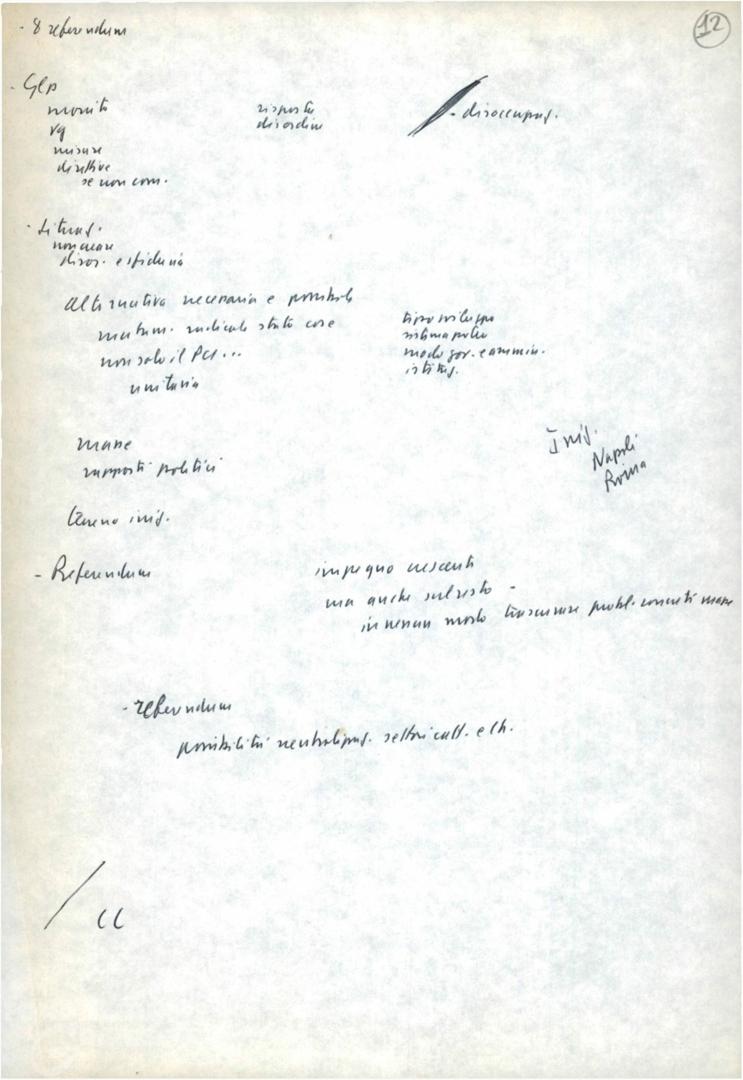 12
- 8 referendum
- Gep
moniti
vq
misure
direttive
se non com.
risposta
disordine
- disoccupaz.
- Situaz.
non creare
disor. e sfiducia
alternativa necessaria e possibile
mutam. radicale stato cose
non solo il PCI...
unitaria
tipo sviluppo
sistema potere
modo gov. e ammin.
istituz.
masse
rapporti politici
Iniz.
Napoli
Roma
terreno iniz.
- Referendum
impegno crescente
ma anche sul resto -
in nessun modo trascurare probl. concreti masse
- referendum
possibilità neutralizzaz. settori catt. e ch.
/ CC